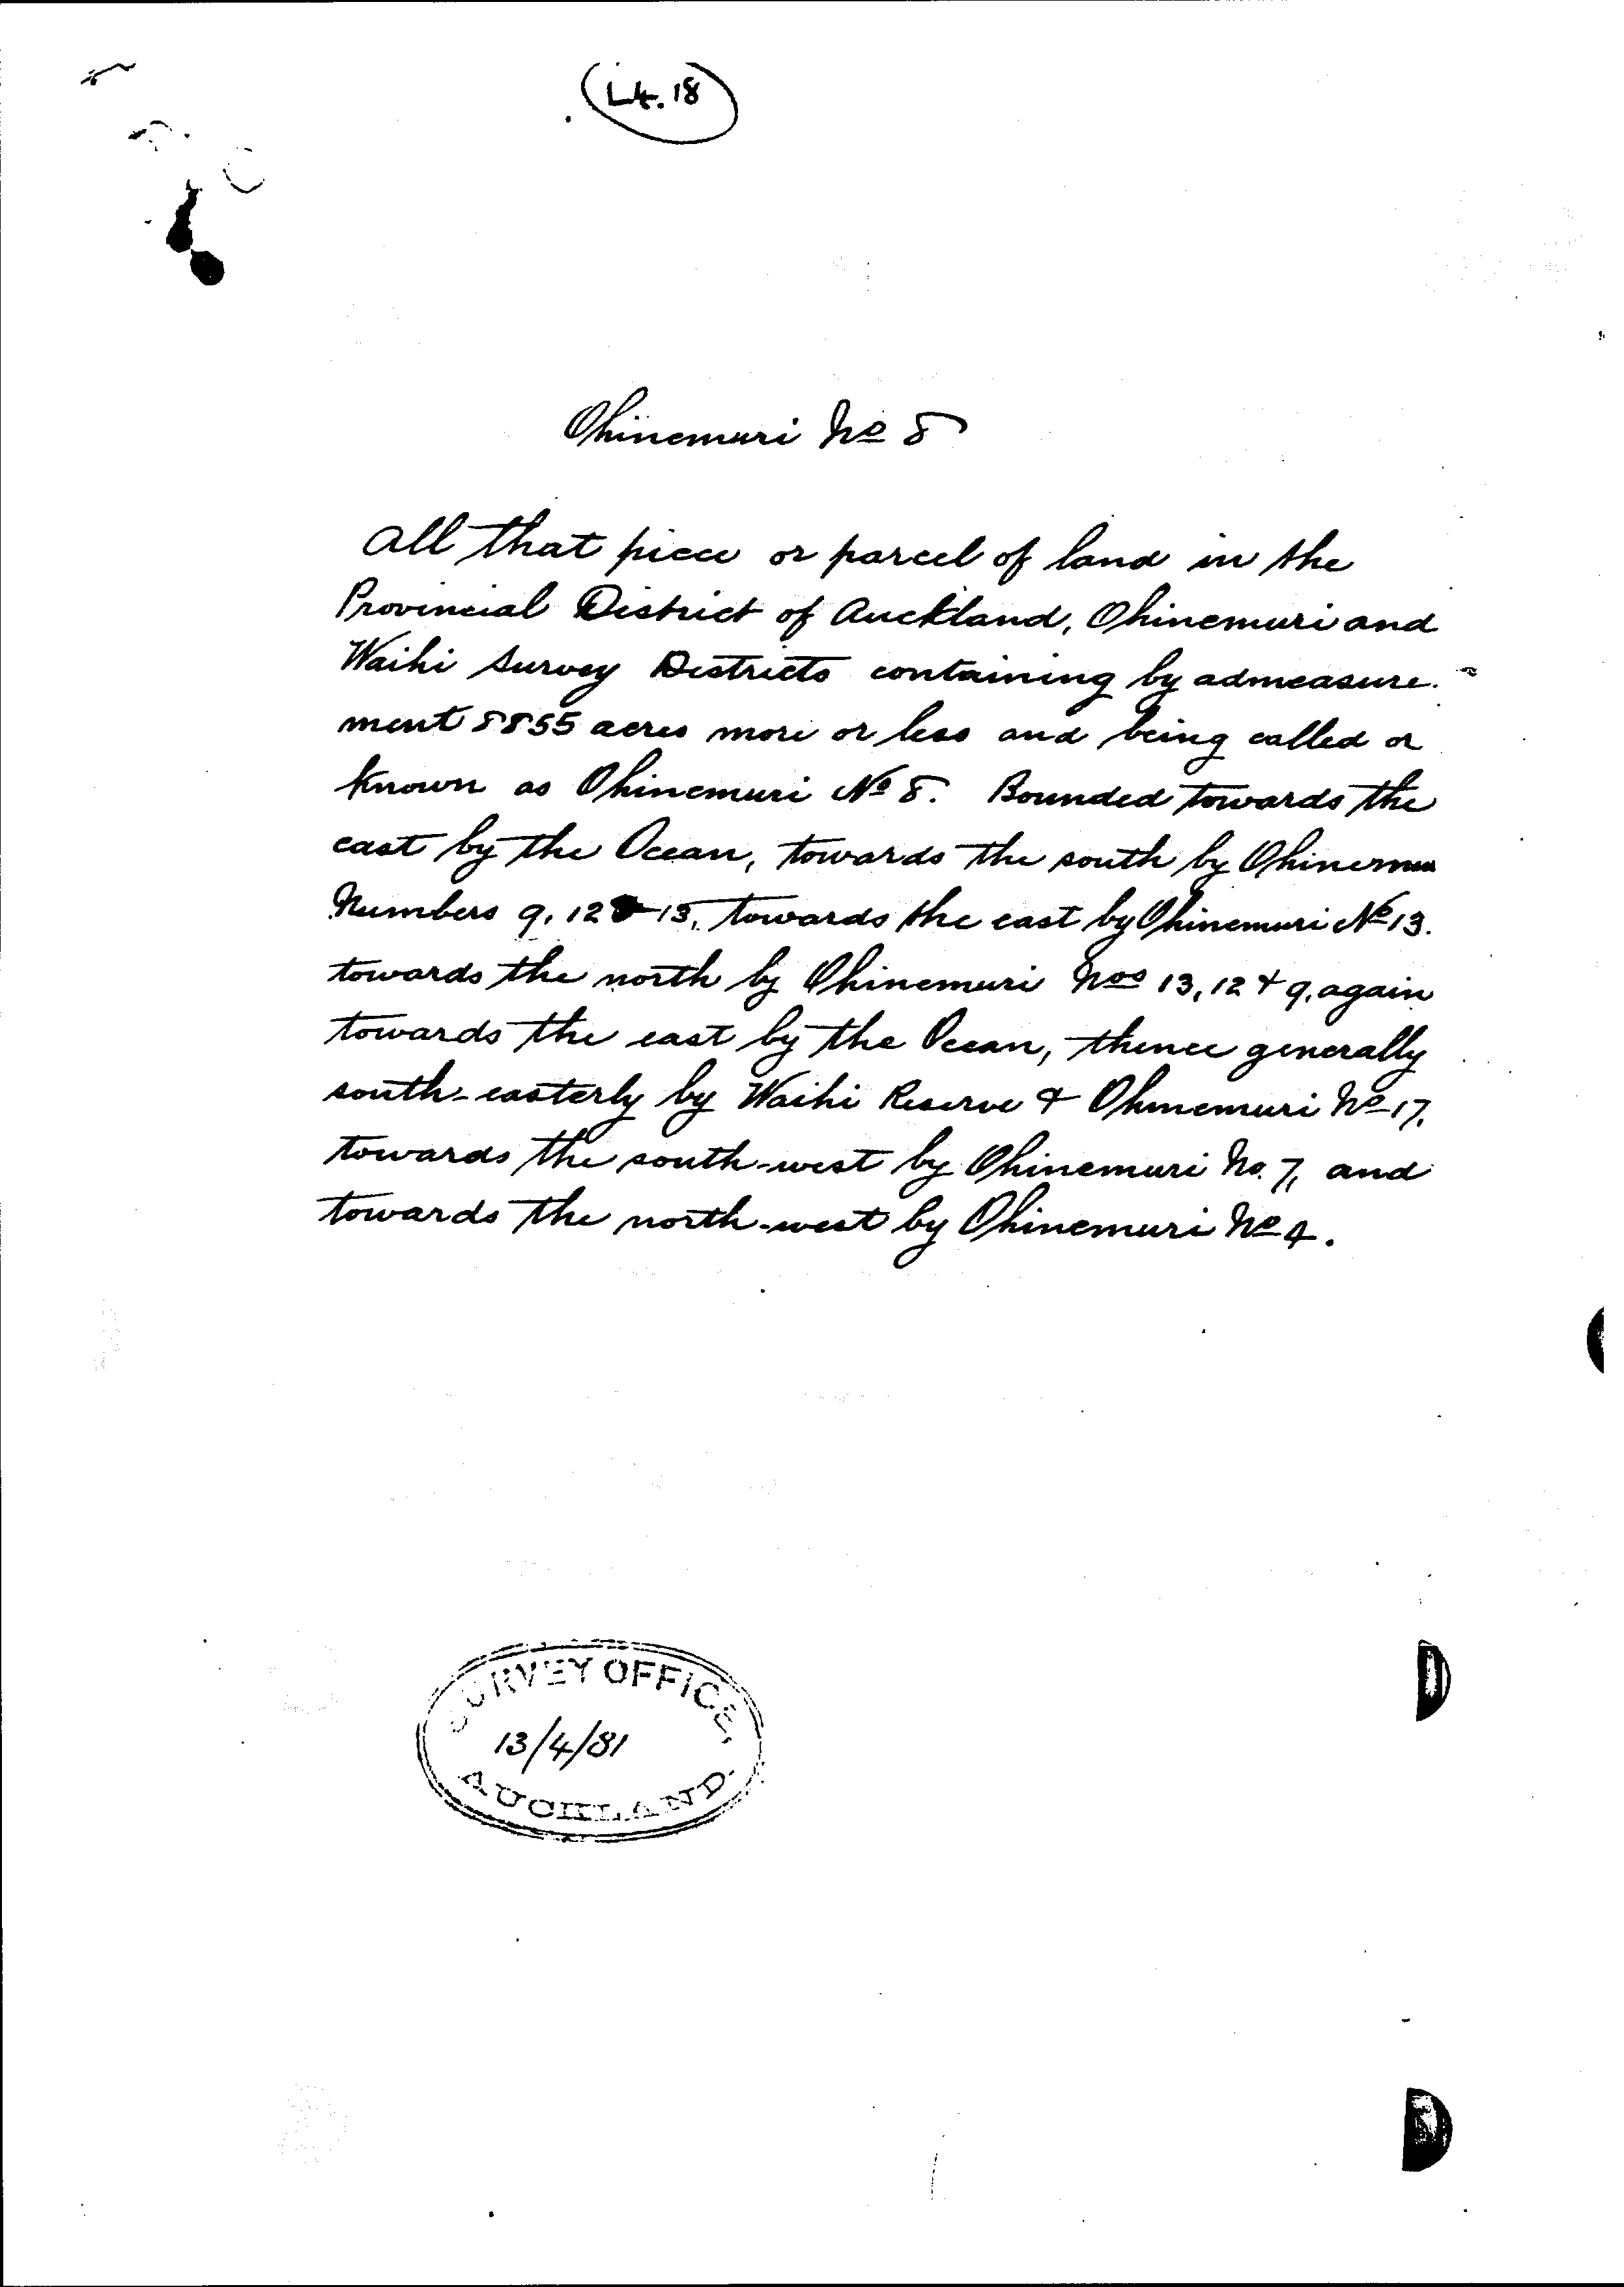 L4.18
Ohinemuri No 8
All that piece or parcel of land in the
Provincial District of Auckland, Ohinemuri and
Waihi Survey Districts containing by admeasure-
ment 8855 acres more or less and being called or
known as Ohinemuri No 8. Bounded towards the
east by the Ocean, towards the south by Ohinemuri
Numbers 9, 12 & 13, towards the east by Ohinemuri No 13.
towards the north by Ohinemuri Nos 13, 12 & 9, again
towards the east by the Ocean, thence generally
south-easterly by Waihi Reserve & Ohinemuri No 17,
towards the south-west by Ohinemuri No. 7, and
towards the north-west by Ohinemuri No 4.
SURVEY OFFICE,
13/4/81
AUCKLAND.